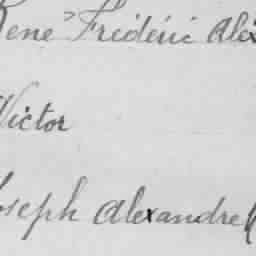 René Frédéric Alex
Victor
Joseph Alexandre